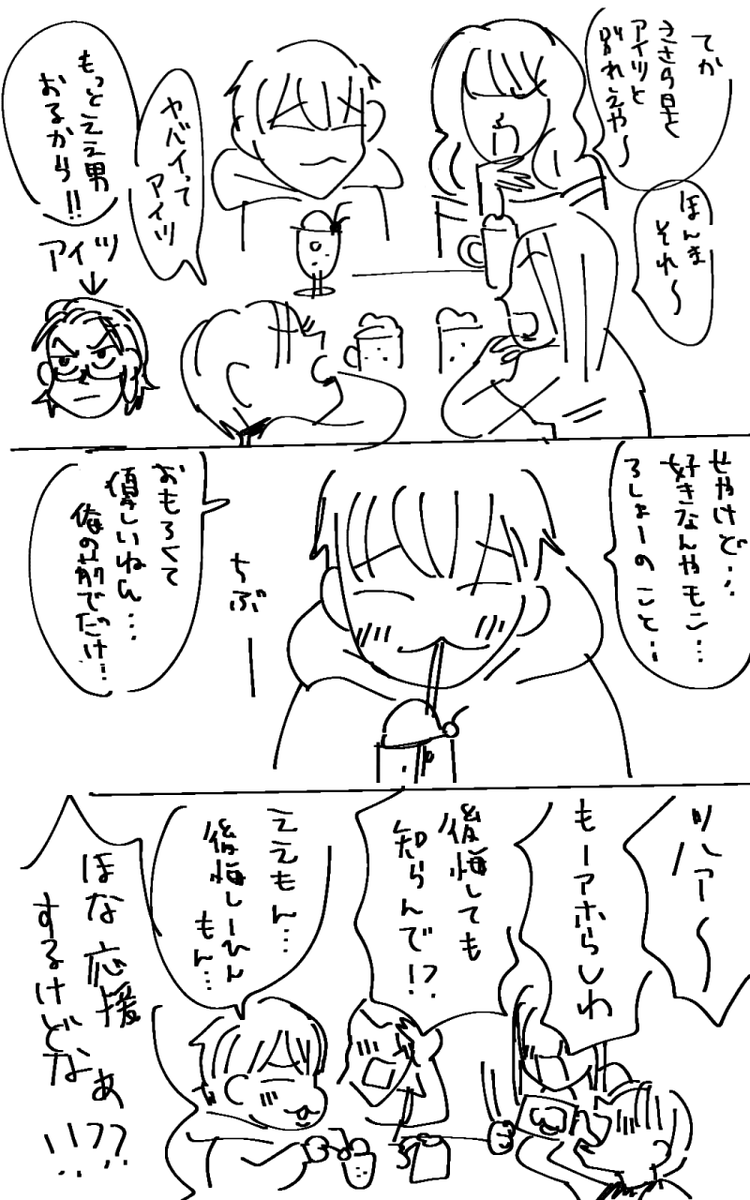 てか
ささら早よ
アイツと
別れえや〜
ほんま
それ〜
ヤバイって
アイツ
もっとええ男
おるから!!
アイツ
せやけど…
好きなんやモン…
ろしょーのこと…
ちぷー
おもろくて
優しいねん…
俺の前でだけ…
ハァー〜
もーアホらしわ
後悔しても
知らんで!?
ええもん…
後悔しーひん
もん…
ほな応援
するけどなぁ
!!??